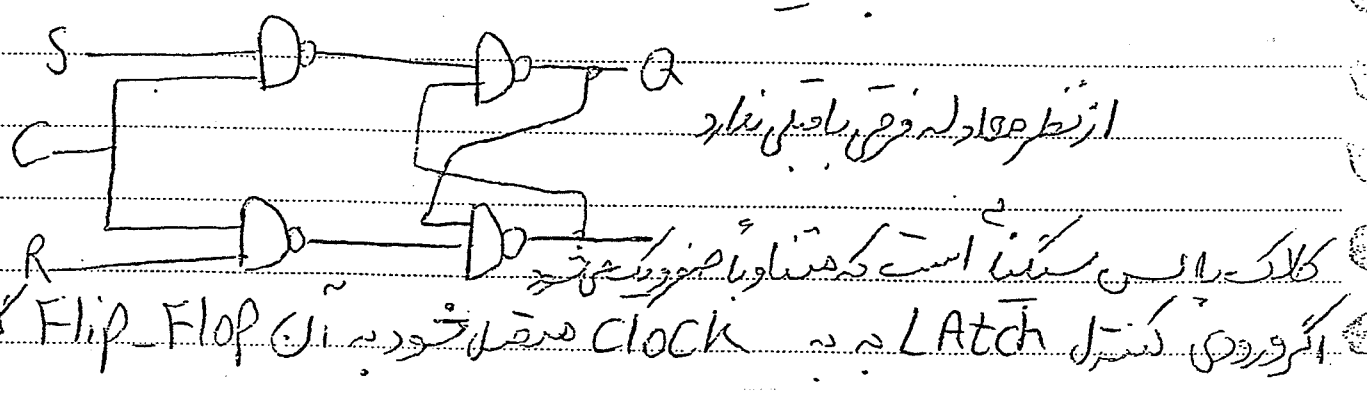 S
Q
از نظر معادله فرقی با قبلی ندارد
C
R
کلاک پالس سیگنالی است که متناوباً صفر و یک می شود
اگر ورودی کنترل LAtch به به CLOCK متصل شود به آن Flip_Flop